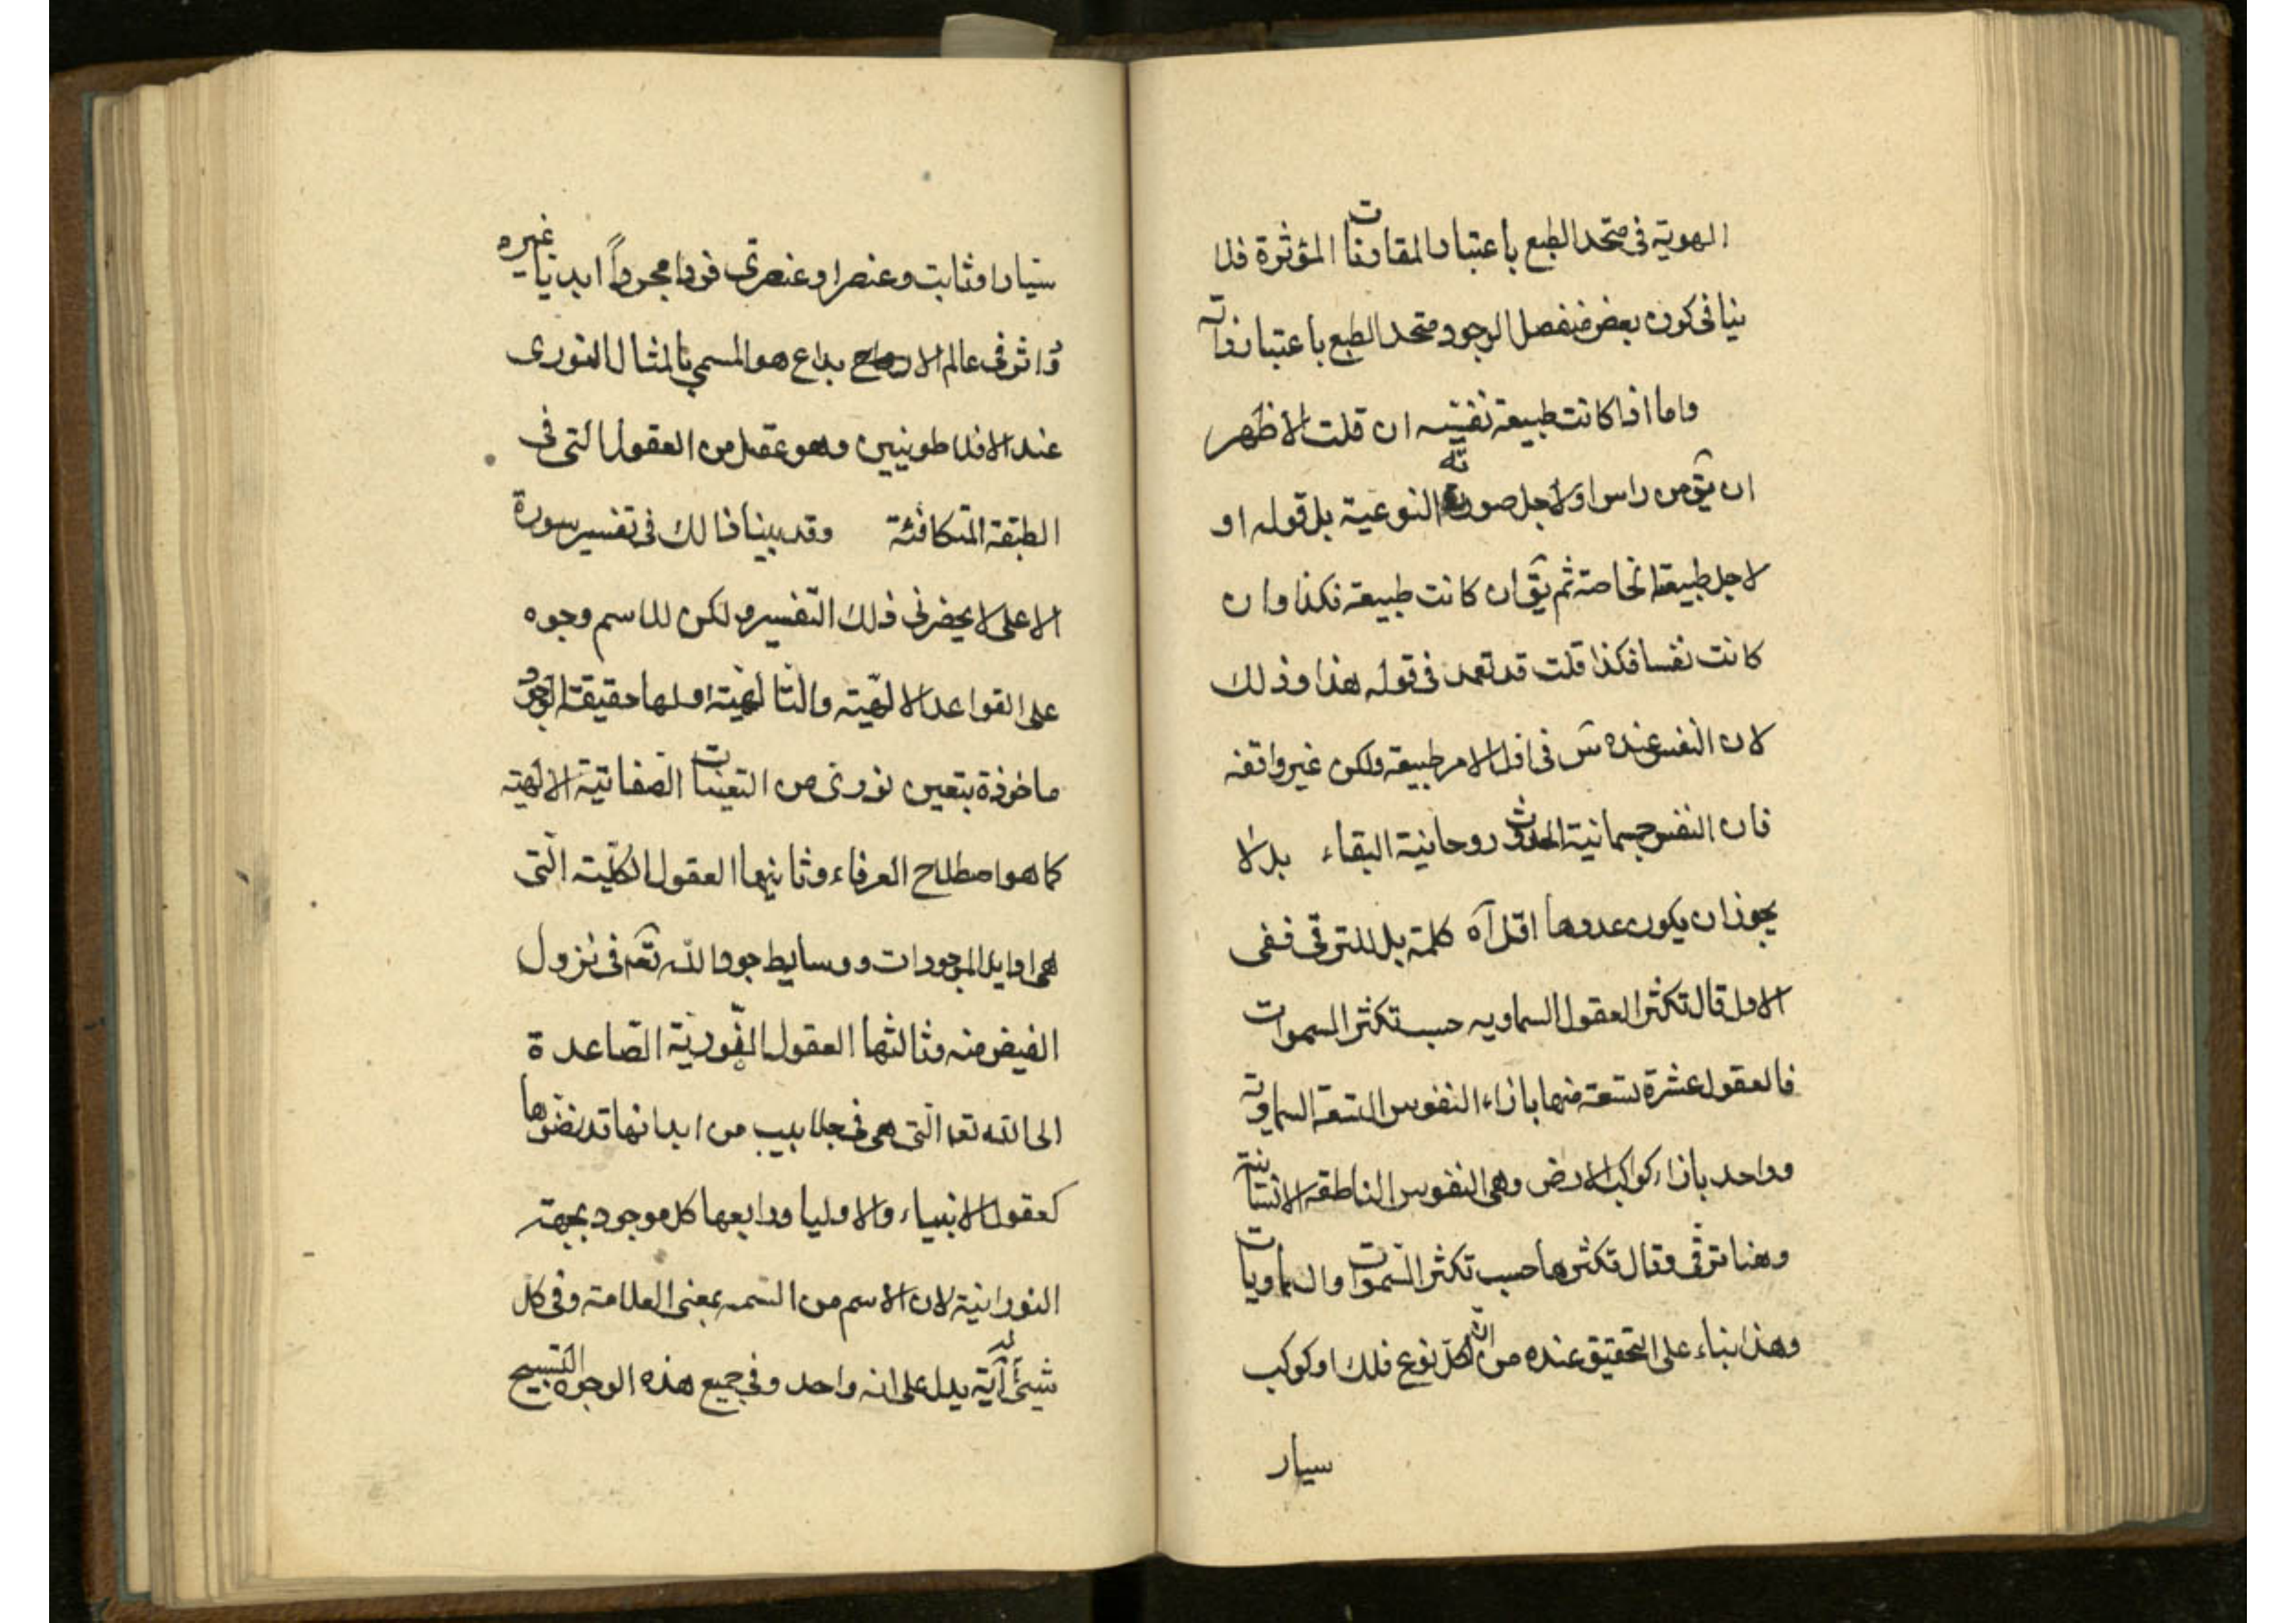 الهوية فى متحد الطبع باعتبار المقارنات المؤثرة فلا
ينافى كون بعض منفصل الوجود متحد الطبع باعتبار ذاته
واما اذا كانت طبيعة نفسية ان قلت الاظهر
ان يق من راس او لاجل صورته النوعية بل قوله او
لاجل طبيعة الخاصة ثم يق ان كانت طبيعة فكذا وان
كانت نفسا فكذا قلت قد تعمد فى قوله هذا وذلك
لان النفس عنده س فى اول الامر طبيعة ولكن غير واقفة
فان النفس جسمانية الحدوث روحانية البقاء بدلا
يجوز ان يكون عددها اقل آه كلمة بل للترقى ففى
الاول قال تكثر العقول السماويه حسب تكثر السموات
فالعقول عشرة تسعة منها بازاء النفوس التسعة السماوية
وواحد بازاء كواكب الارض وهى النفوس الناطقة الانسانية
وهنا ترقى وقال تكثرها حسب تكثر السموات والسماويات
وهذا بناء على التحقيق عنده من ان لكل نوع فلك او كوكب
سيار
سيارا وثابت وعنصر او عنصرى فردا مجردا ابديا غيره
داثر فى عالم الابداع هو المسمى بالمثال النورى
عند الافلاطونيين وهو عقل من العقول التى فى
الطبقة المتكافئة وقد بينا ذالك فى تفسير سورة
الاعلى لا يحضرنى ذلك التفسير ولكن للاسم وجوه
على القواعد الالهية والتالهية اولها حقيقة الوجود
ماخوذة بتعين نورى من التعينات الصفاتية الالهية
كما هو اصطلاح العرفاء وثانيها العقول الكلية التى
هى اوايل الموجودات ووسايط جود الله تعه فى نزول
الفيض منه وثالثها العقول النورية الصاعدة
الى الله تعه التى هى فى جلابيب من ابدانها قد نضوها
كعقول الانبياء والاوليا ورابعها كل موجود بجهته
النورانية لان الاسم من السمه بمعنى العلامة وفى كل
شيئ له آية يدل على انه واحد وفى جميع هذه الوجوه التسبيح